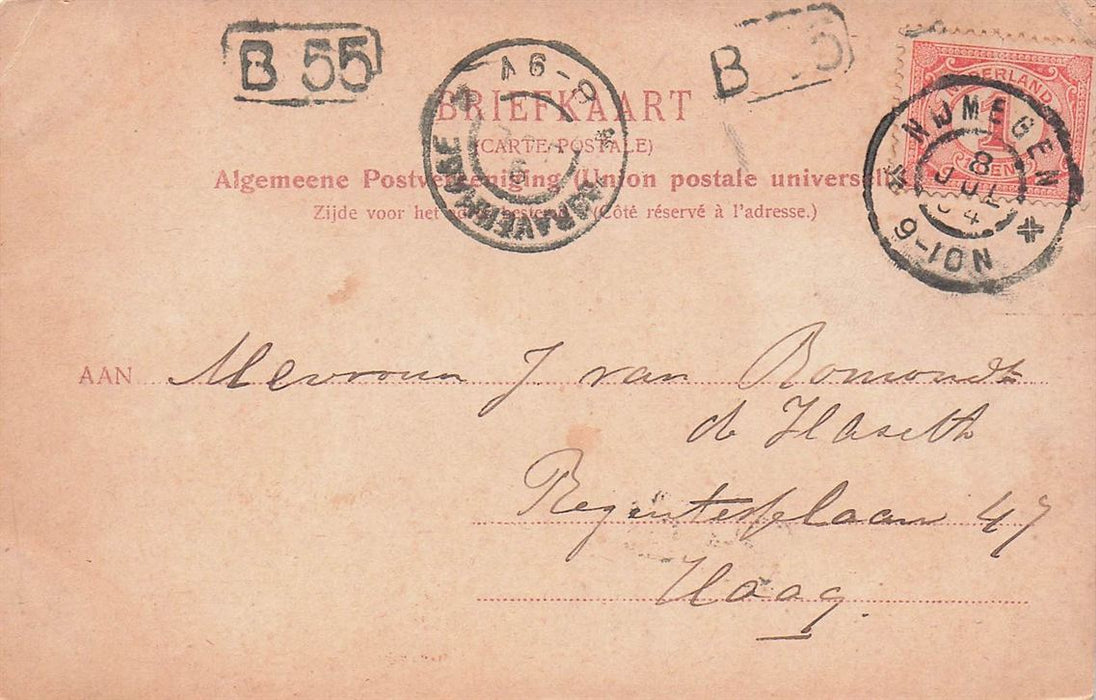 B 55
B 5
BRIEFKAART
(CARTE POSTALE)
Algemeene Postvereeniging (Union postale universelle)
Zijde voor het adres bestemd. (Côté réservé à l'adresse.)
'S GRAVENHAGE
NEDERLAND
1
CENT
NIJMEGEN
8
JUL
04
9-10N
AAN Mevrouw J. van Romondt
de Haseth
Regentesselaan 47
Haag.